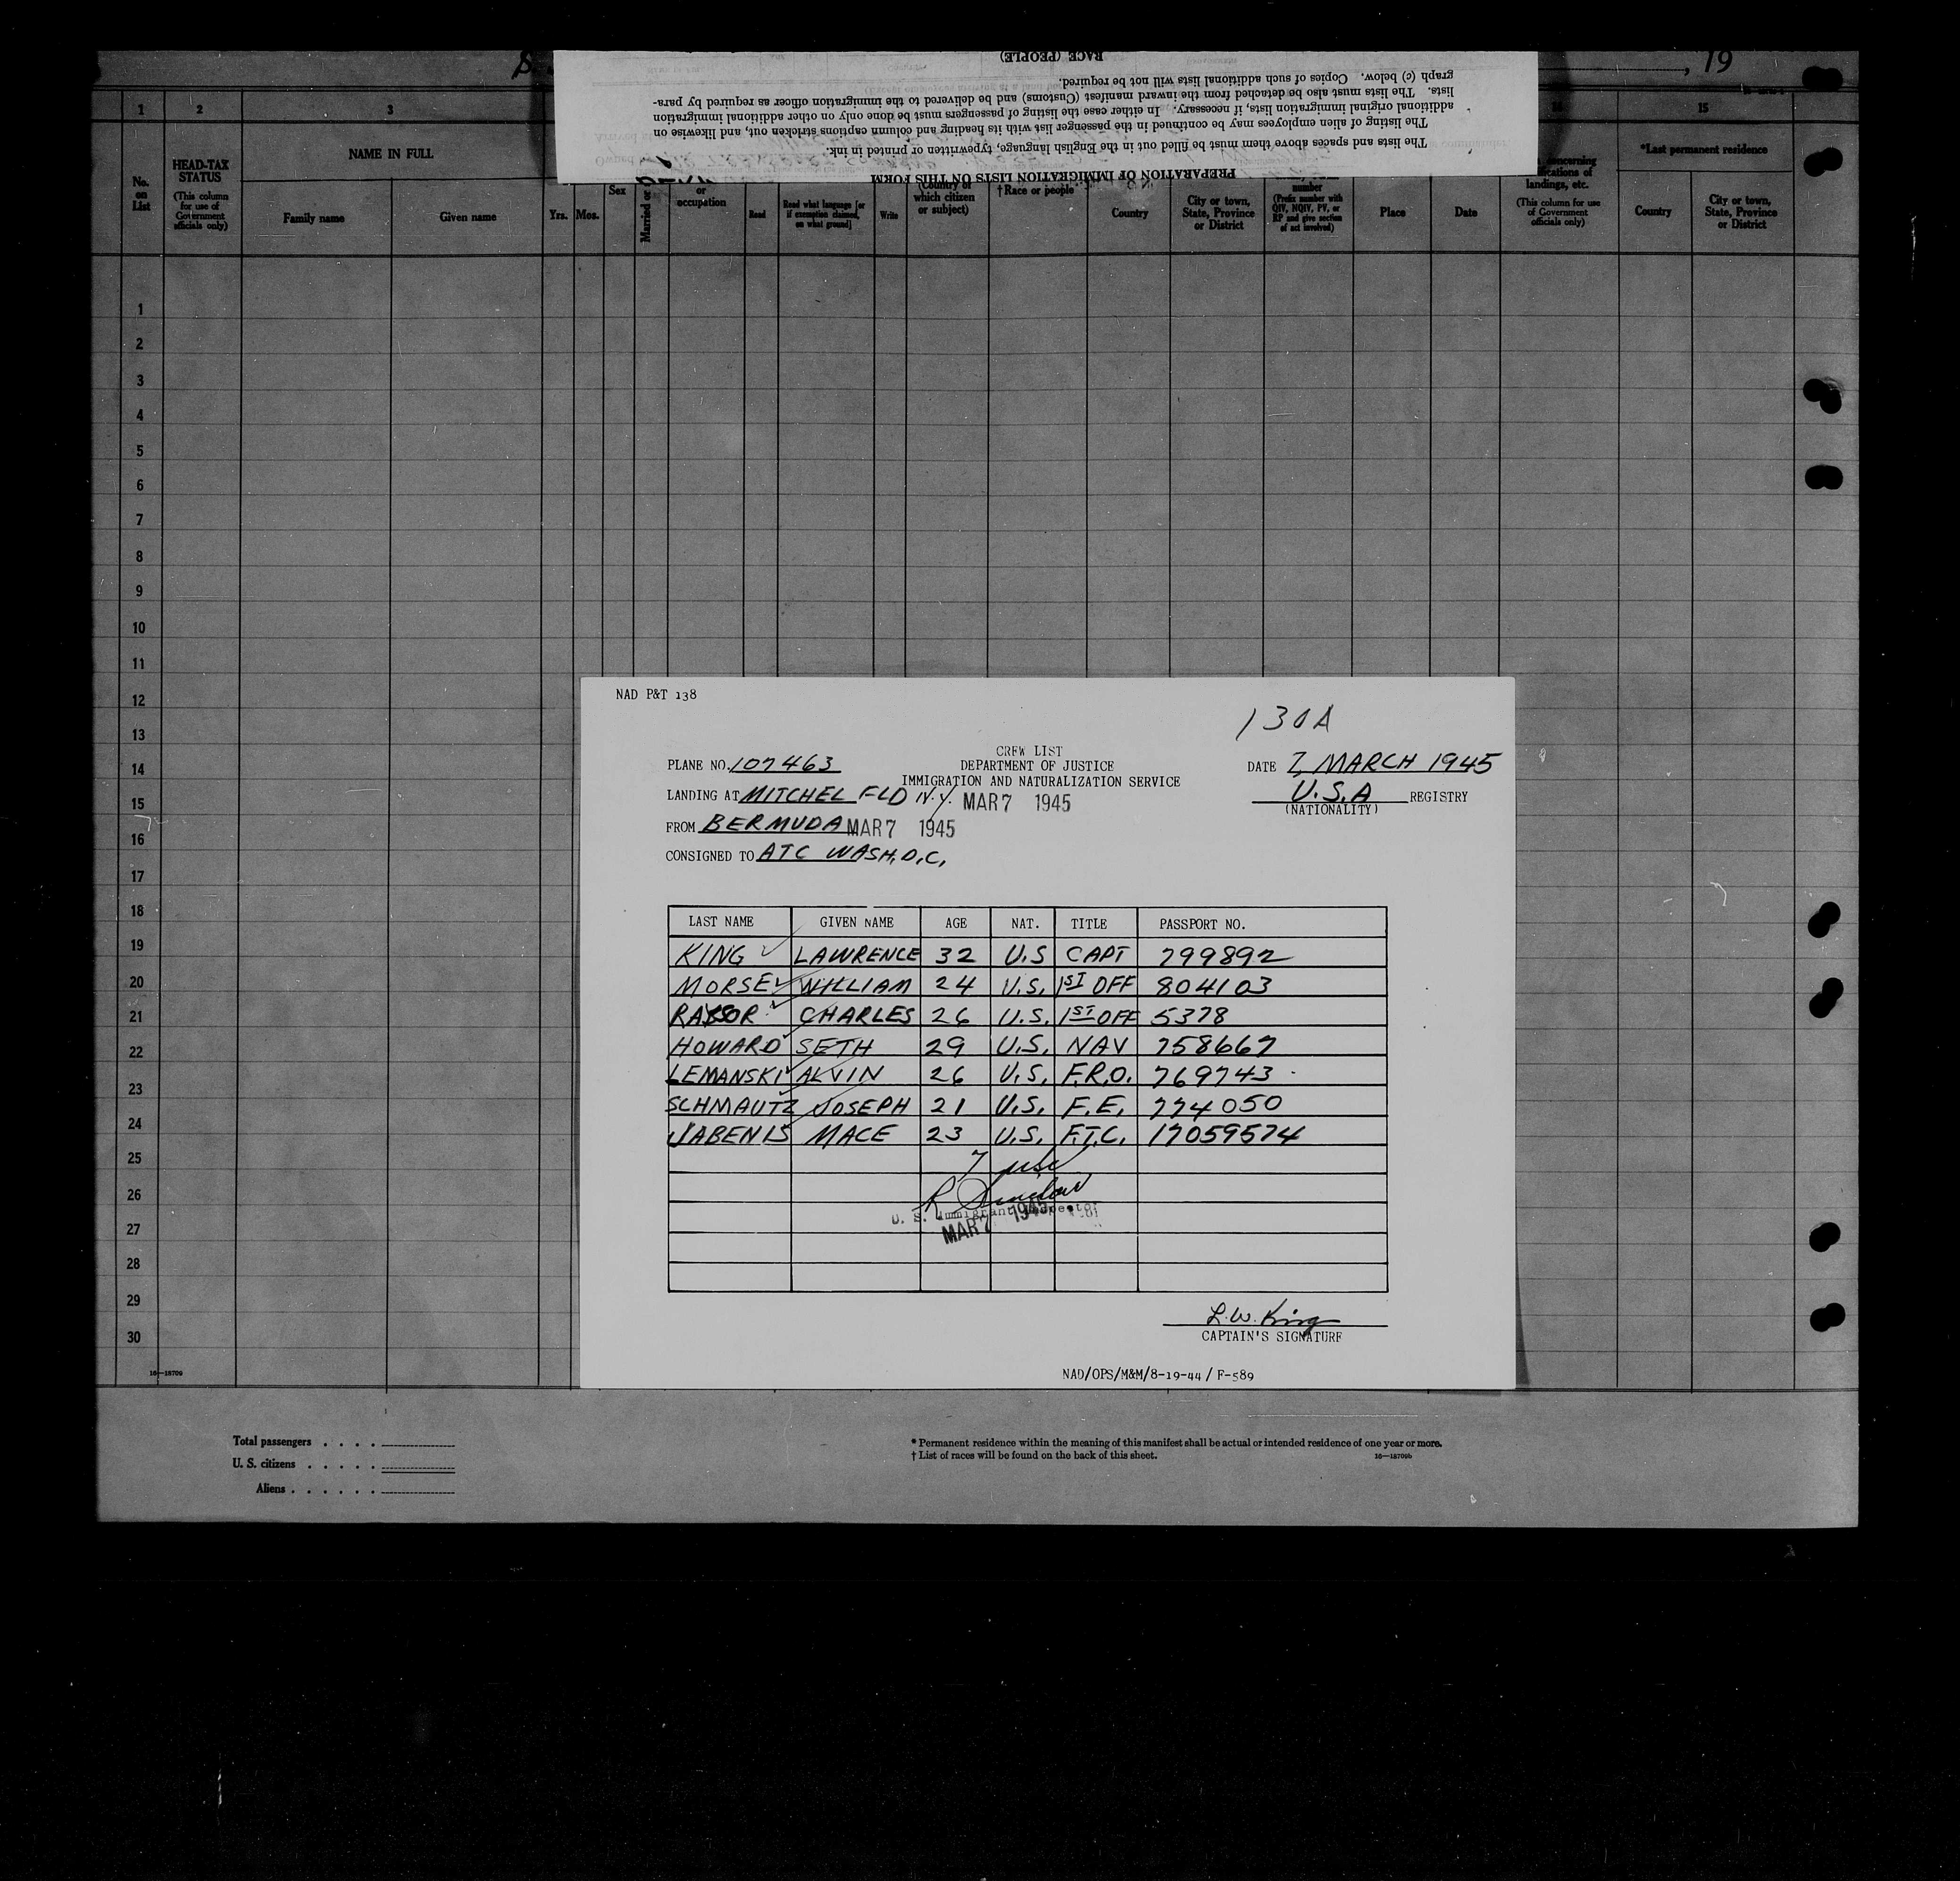 , 19
RACE (PEOPLE)
graph (c) below. Copies of such additional lists will not be required.
lists. The lists must also be detached from the inward manifest (Customs) and be delivered to the immigration officer as required by para-
additional original immigration lists, if necessary. In either case the listing of passengers must be done only on other additional immigration
The listing of alien employees may be continued in the passenger list with its heading and column captions stricken out, and likewise on
The lists and spaces above them must be filled out in the English language, typewritten or printed in ink.
PREPARATION OF IMMIGRATION LISTS ON THIS FORM
1 2 3 15
No. on List
HEAD-TAX STATUS
(This column for use of Government officials only)
NAME IN FULL
Family name
Given name
Yrs. Mos.
Sex
Married or
or occupation
Read
Read what language [or if exemption claimed, on what ground]
Write
(Country of which citizen or subject)
†Race or people
Country
City or town, State, Province or District
number
(Prefix number with QIV, NQIV, PV, or RP and give section of act involved)
Place
Date
concerning
landings, etc.
(This column for use of Government officials only)
*Last permanent residence
Country
City or town, State, Province or District
1
2
3
4
5
6
7
8
9
10
11
12
13
14
15
16
17
18
19
20
21
22
23
24
25
26
27
28
29
30
16—18709
NAD P&T 138
130A
CREW LIST
PLANE NO. 107463 DEPARTMENT OF JUSTICE DATE 7 MARCH 1945
IMMIGRATION AND NATURALIZATION SERVICE
LANDING AT MITCHEL FLD N.Y. MAR 7 1945 U.S.A REGISTRY
(NATIONALITY)
FROM BERMUDA MAR 7 1945
CONSIGNED TO ATC WASH, D.C,
LAST NAME GIVEN NAME AGE NAT. TITLE PASSPORT NO.
KING LAWRENCE 32 U.S CAPT 799892
MORSE WILLIAM 24 U.S. 1ST OFF 804103
CHARLES 26 U.S. 1ST OFF 5378
HOWARD SETH 29 U.S. NAV 758667
LEMANSKI ALVIN 26 U.S. F.R.O. 769743
SCHMAUTZ JOSEPH 21 U.S. F.E. 774050
JABENIS MACE 23 U.S. F.T.C. 17059574
7 usc
U. S. Immigrant Inspector
MAR 7 1945
L.W. King
CAPTAIN'S SIGNATURE
NAD/OPS/M&M/8-19-44 / F-589
Total passengers . . . .
U. S. citizens . . . . .
Aliens . . . . . .
* Permanent residence within the meaning of this manifest shall be actual or intended residence of one year or more.
† List of races will be found on the back of this sheet.
16—18709b